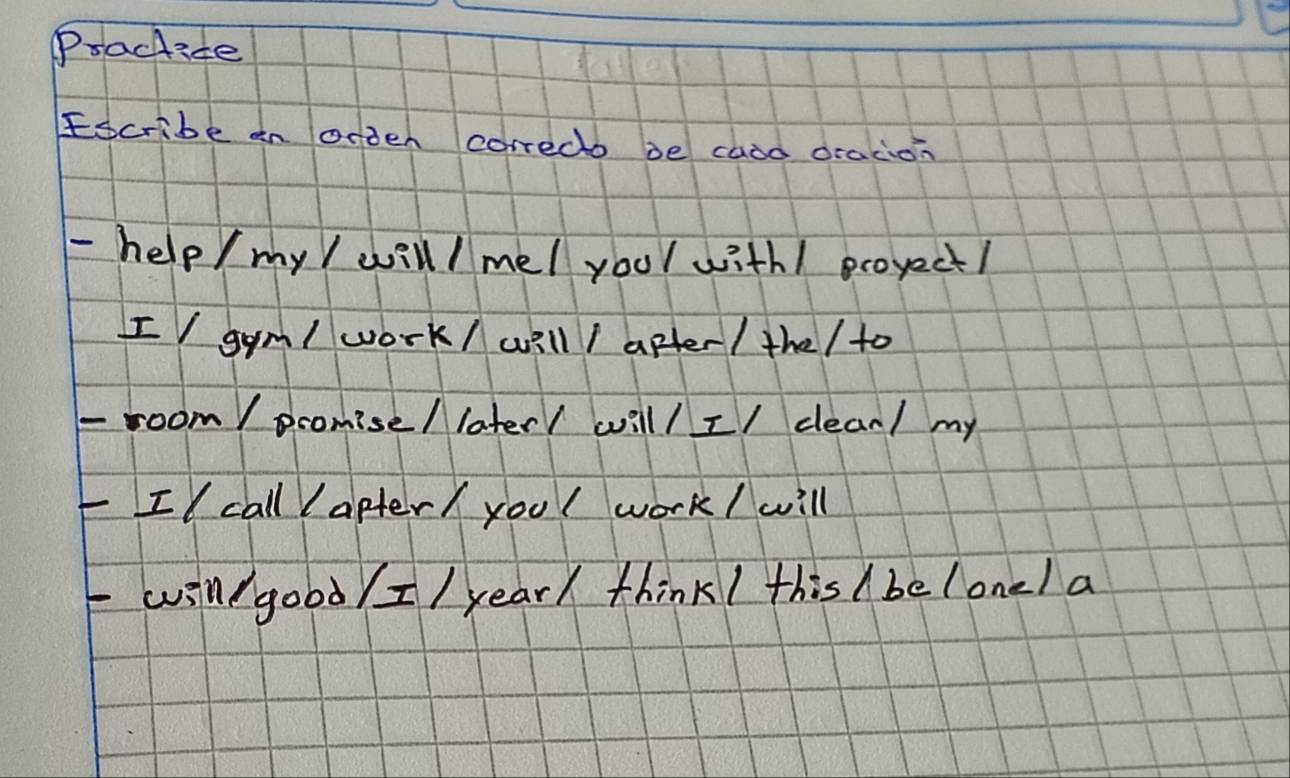 Practice
Escribe en orden correcto de cada oración
- help / my / will / me / you / with / proyect /
I / gym / work / will / apter / the / to
- room / promise / later / will / I / clean / my
- I / call / apter / you / work / will
- will / good / I / year / think / this / be / one / a